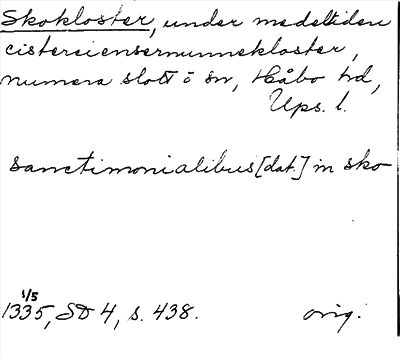 Skokloster, under medeltiden
cisterciensernunnekloster,
numera slott i sn, Håbo hd,
Ups. l.
sanctimonialibus [dat.] in sko
1/5
1335, SD 4, s. 438. orig.